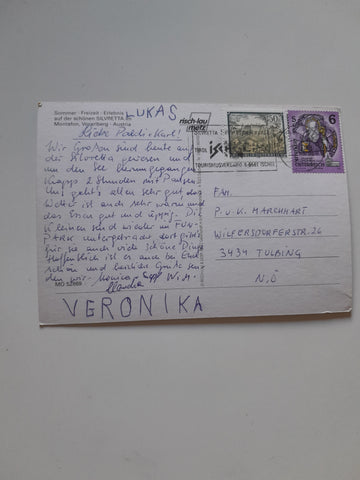 Sommer · Freizeit · Erlebnis
auf der schönen SILVRETTA
Montafon, Vorarlberg - Austria
LUKAS
Liebe Poldi + Karl!
Wir Großen sind heute auf
der Silvretta gewesen und
um den See herumgegangen
knapp 2 Stunden mit Pausen.
Uns geht's allen sehr gut das
Wetter ist auch sehr warm und
das Essen gut und üppig. Die
Kleinen sind wieder im FUN-
PARK untergebracht dort gibt's
für sie auch viele schöne Dinge
Hoffentlich ist es auch bei Euch
schön und herzliche Grüße sen-
den wir Monica
Claudia
VERONIKA
MO 52869
SILVRETTA
TIROL
ISCHGL
TOURISMUSVERBAND 6561 ISCHGL
50
6
FAM.
P. u. K. MARCHHART
WILFERSDORFERSTR. 26
3434 TULBING
N.Ö